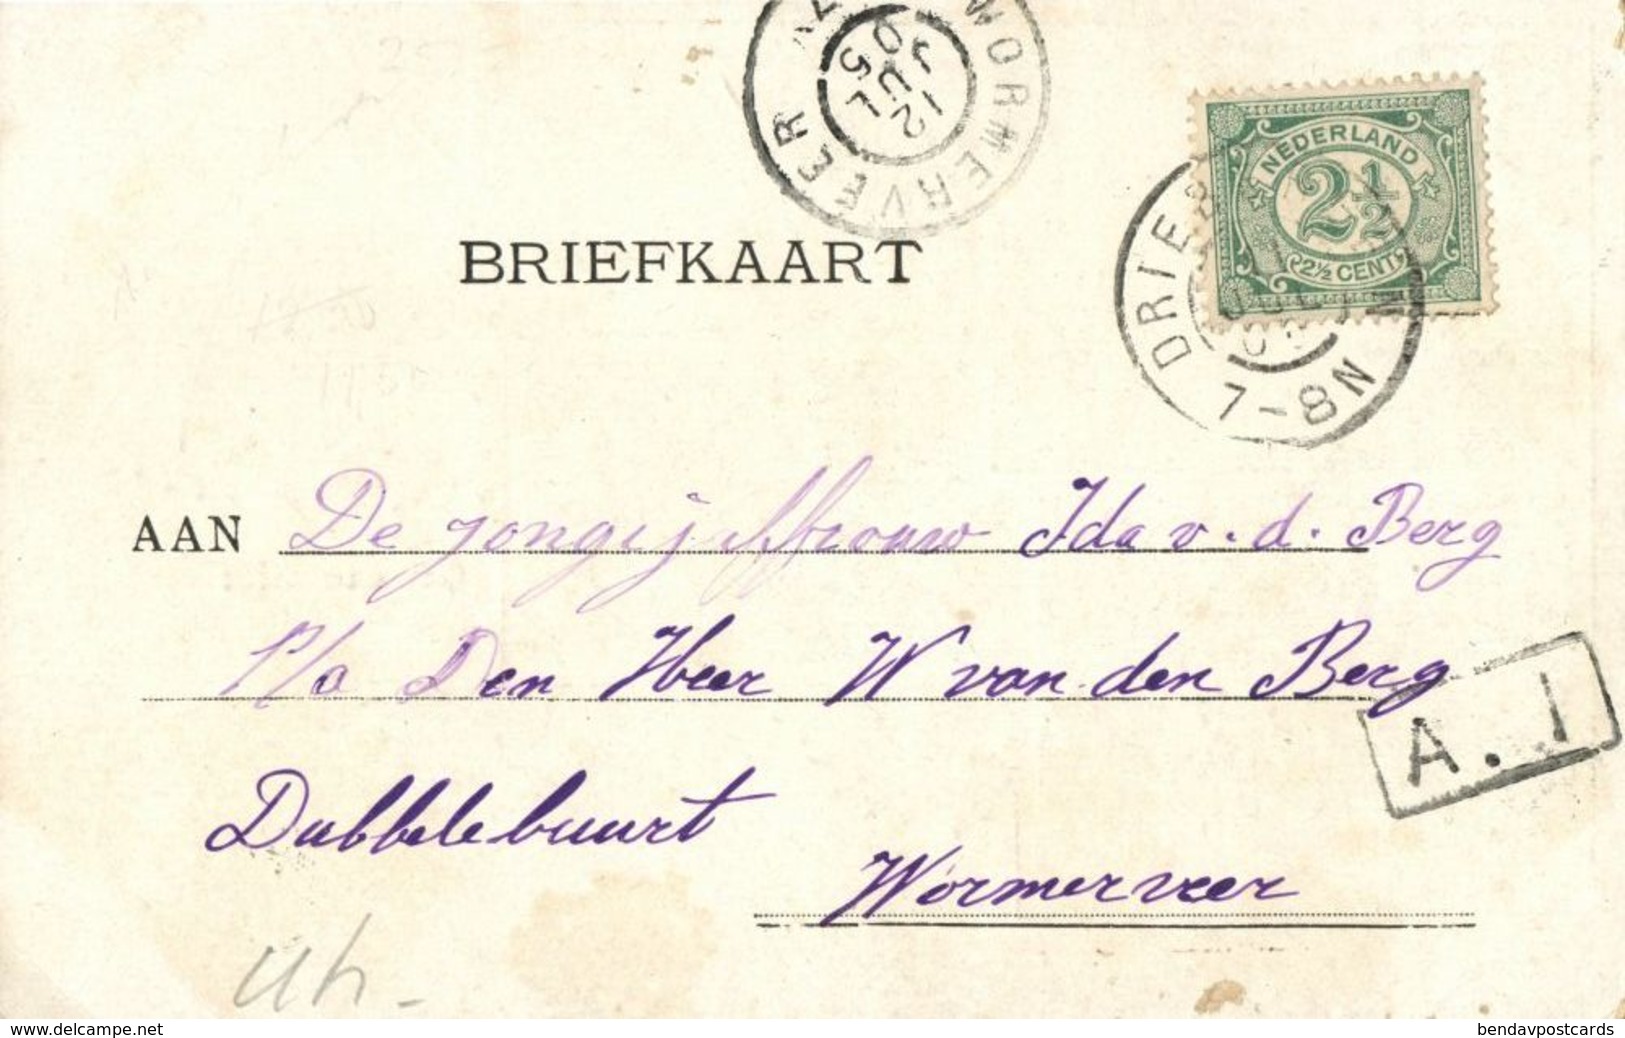 WORMERVEER
12
JUL
05
NEDERLAND
2½
2½ CENT
DRIE
7-8N
BRIEFKAART
AAN De jongej Mrouw Ida v.d. Berg
P/a Den Heer W van den Berg
A. I
Dubbelebuurt
Wormerveer
www.delcampe.net
bendavpostcards